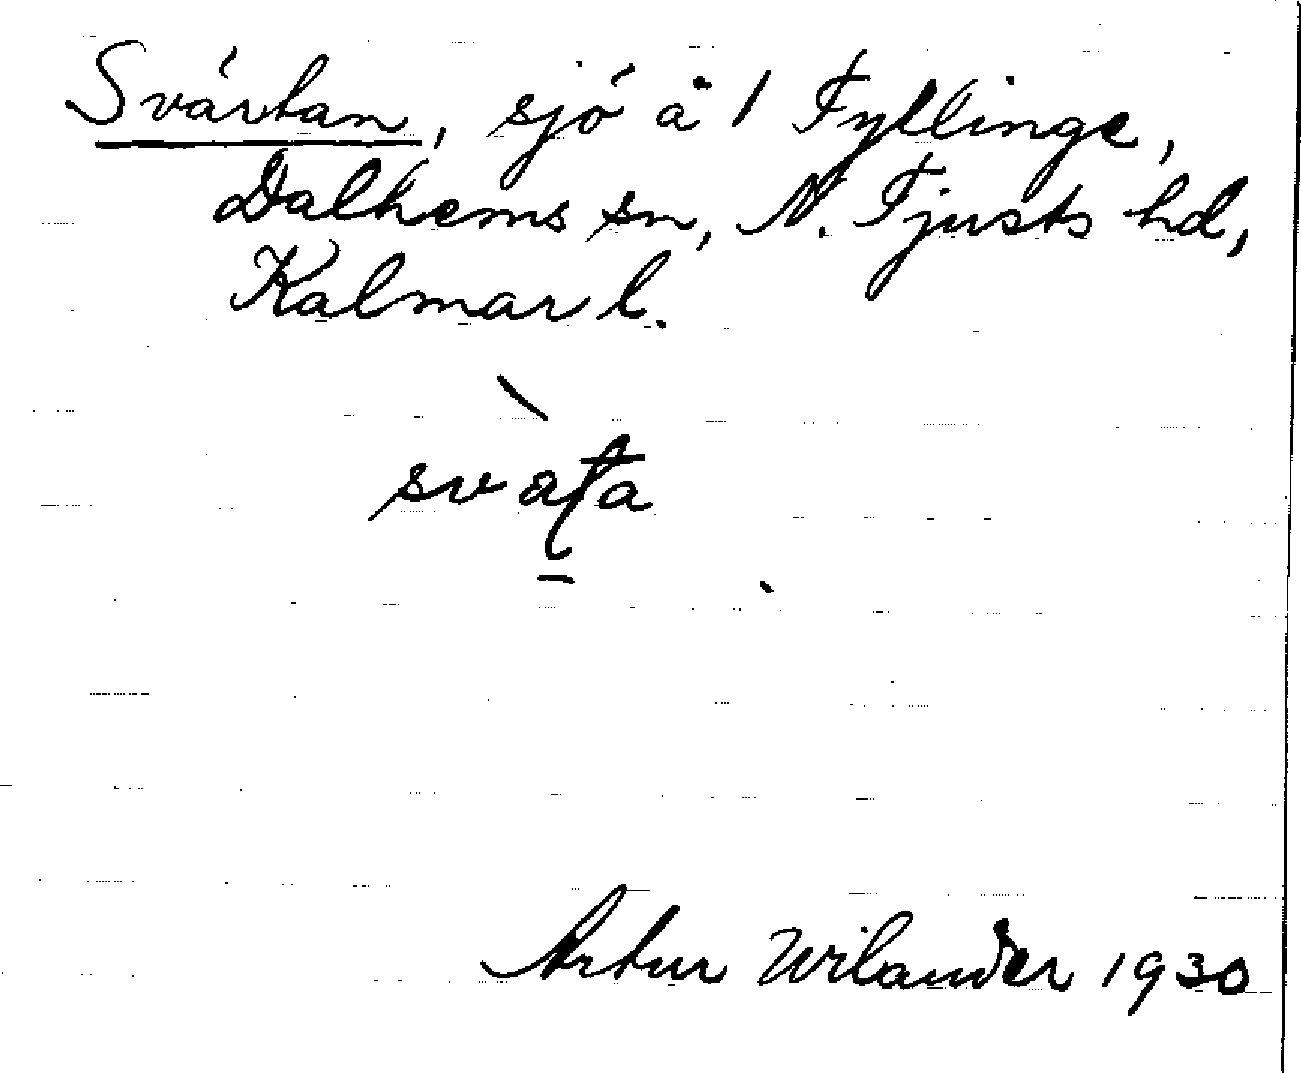 Svärtan, sjö å 1 Fyllinge,
Dalhems sn, N. Tjusts hd,
Kalmar l.
Artur Wilander 1930